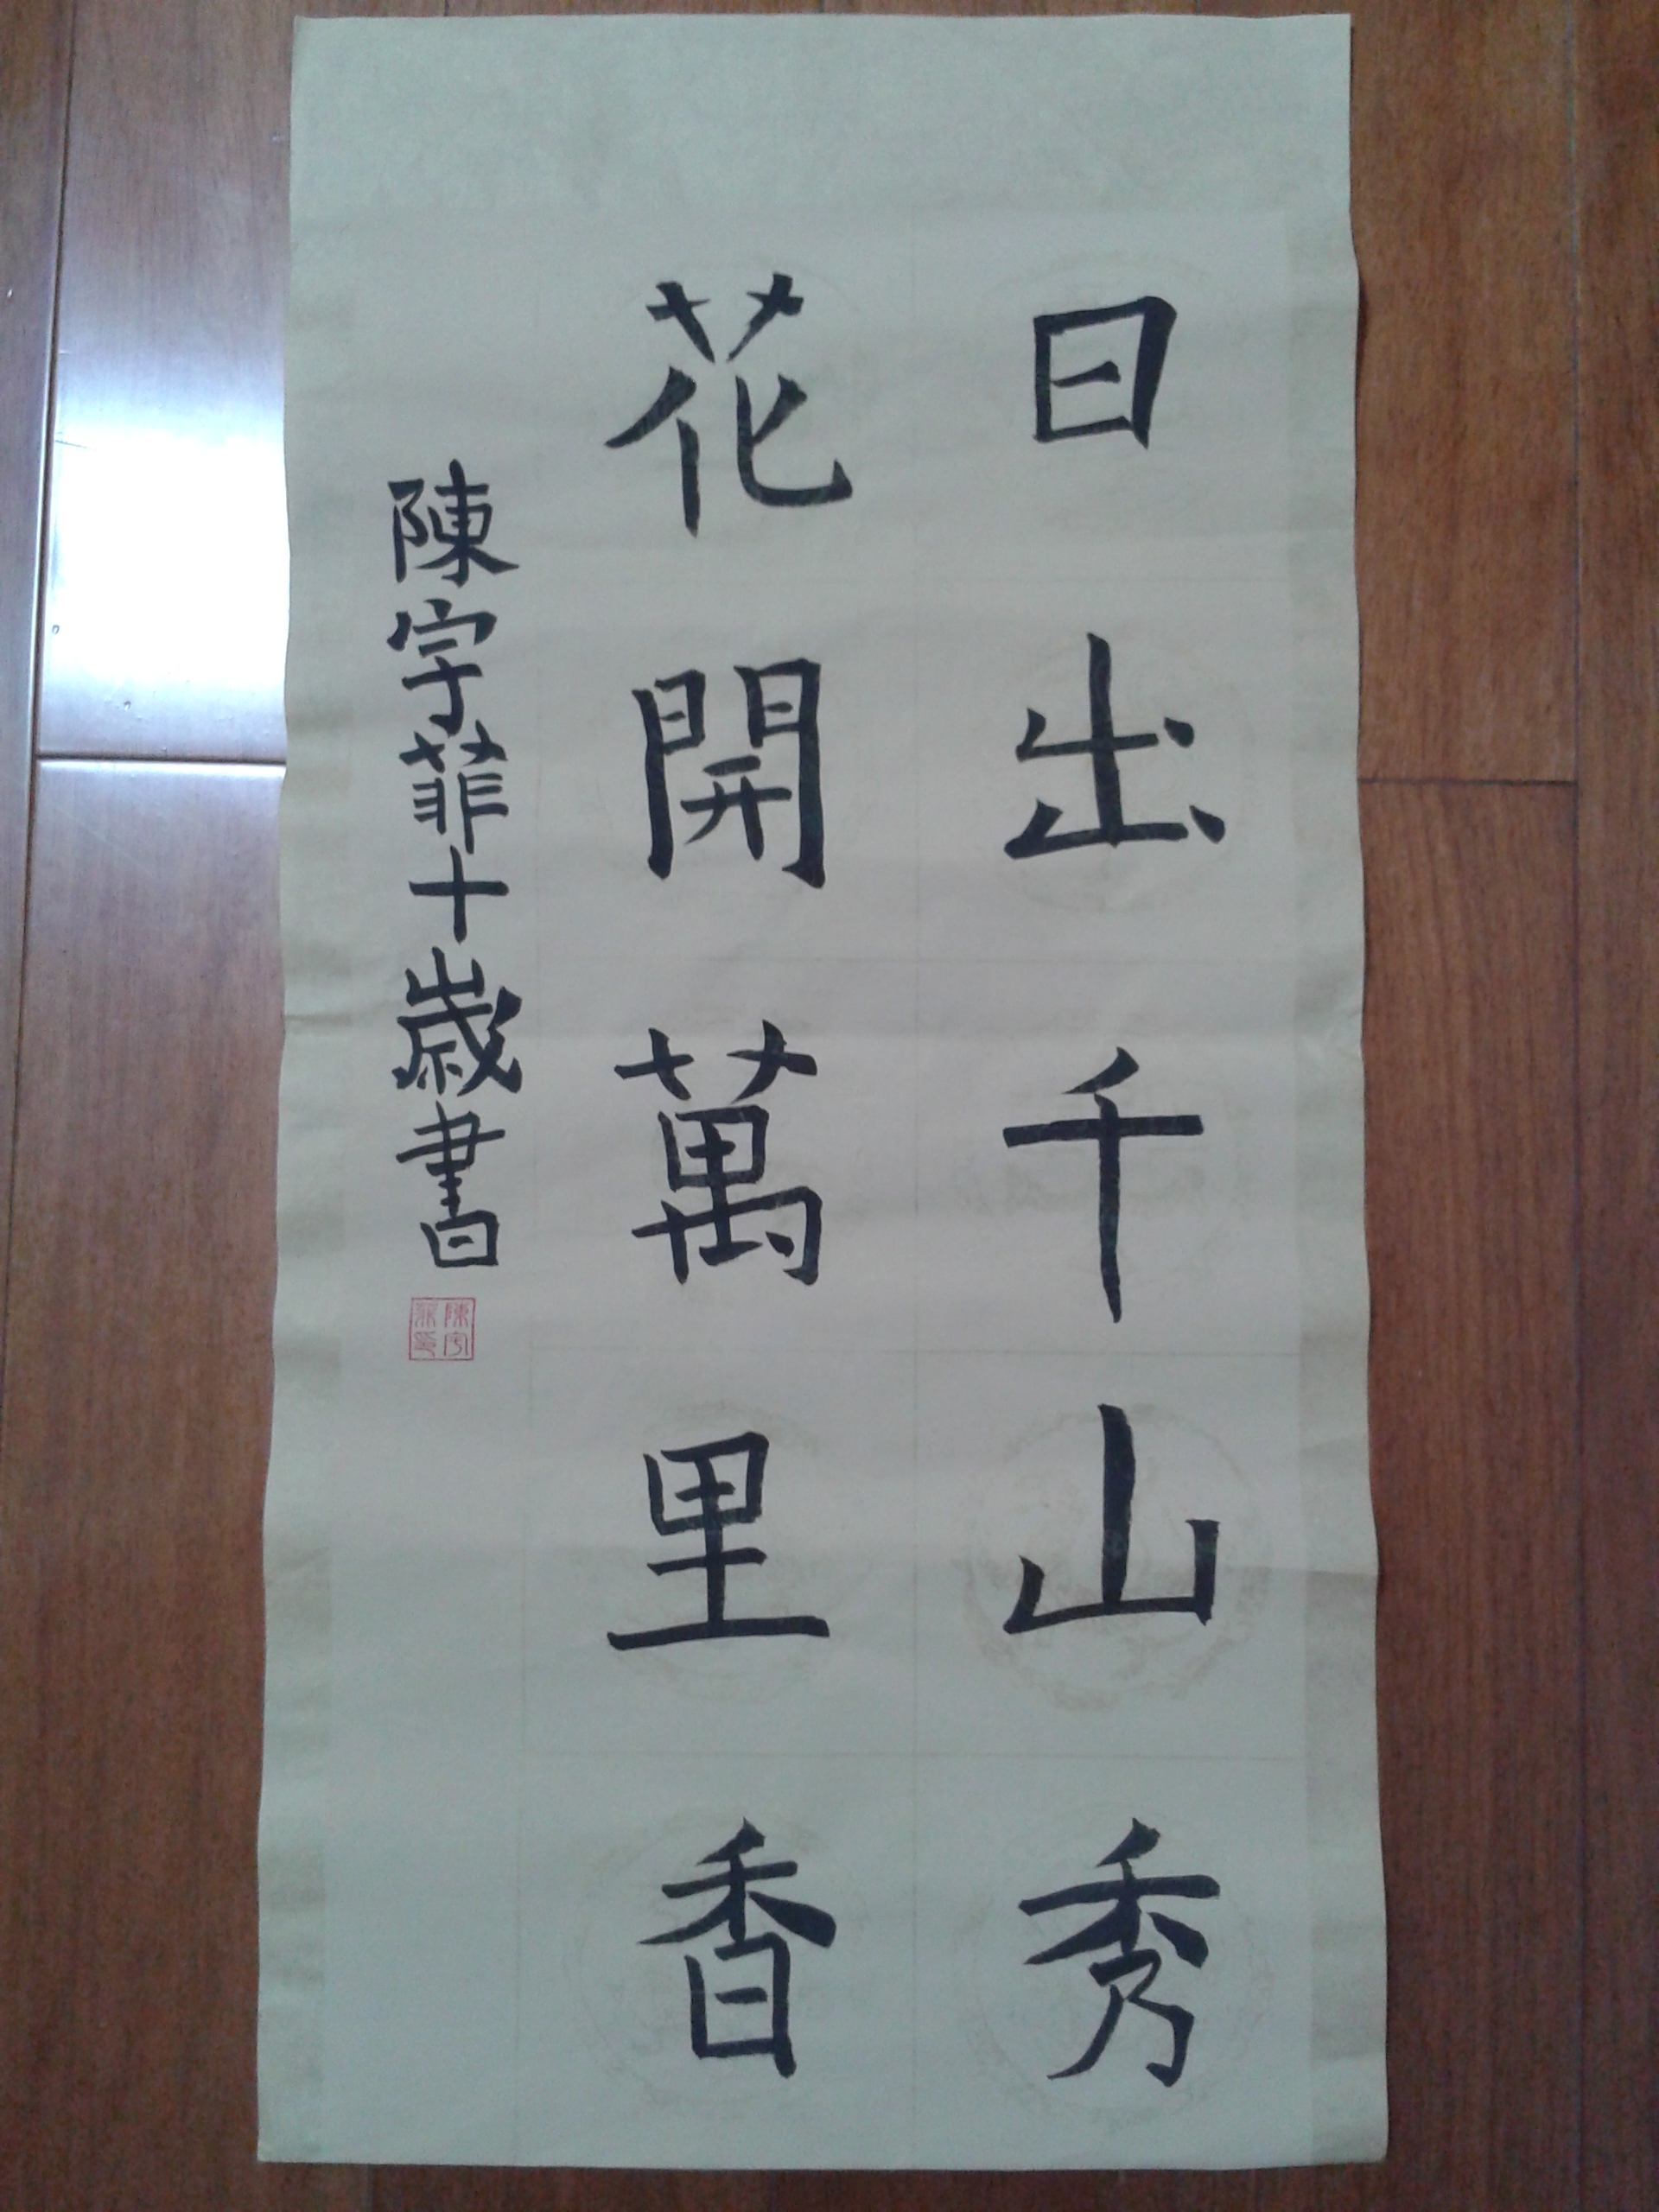 日出千山秀
花開萬里香
陳宇菲十歲書
陳宇菲印